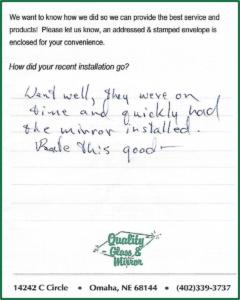 We want to know how we did so we can provide the best service and
products! Please let us know, an addressed & stamped envelope is
enclosed for your convenience.
How did your recent installation go?
Went well, they were on
time and quickly had
the mirror installed.
Rate this good
Quality
Glass &
Mirror
14242 C Circle • Omaha, NE 68144 • (402)339-3737